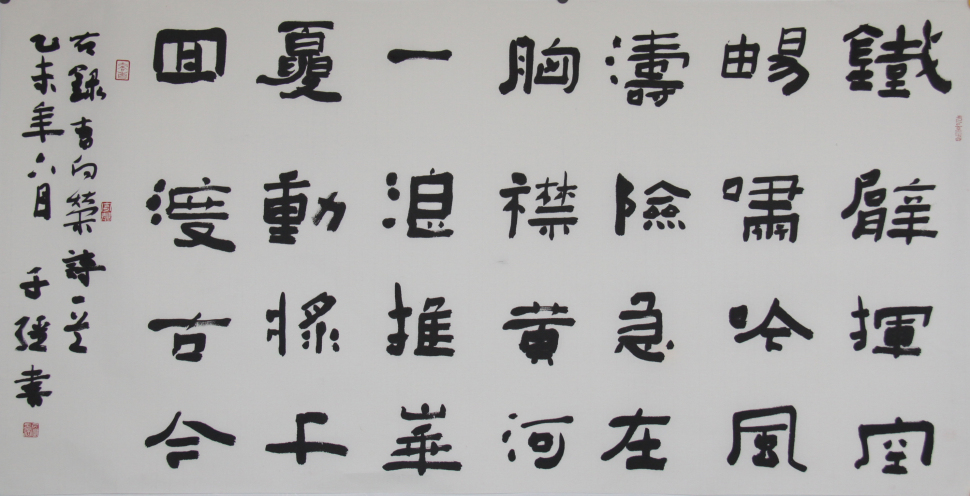 鐵臂揮空
暢嘯吟風
濤險急在
胸襟黃河
一浪推華
夏動槳千
回渡古今
右錄向榮詩一首
乙未年六月 書